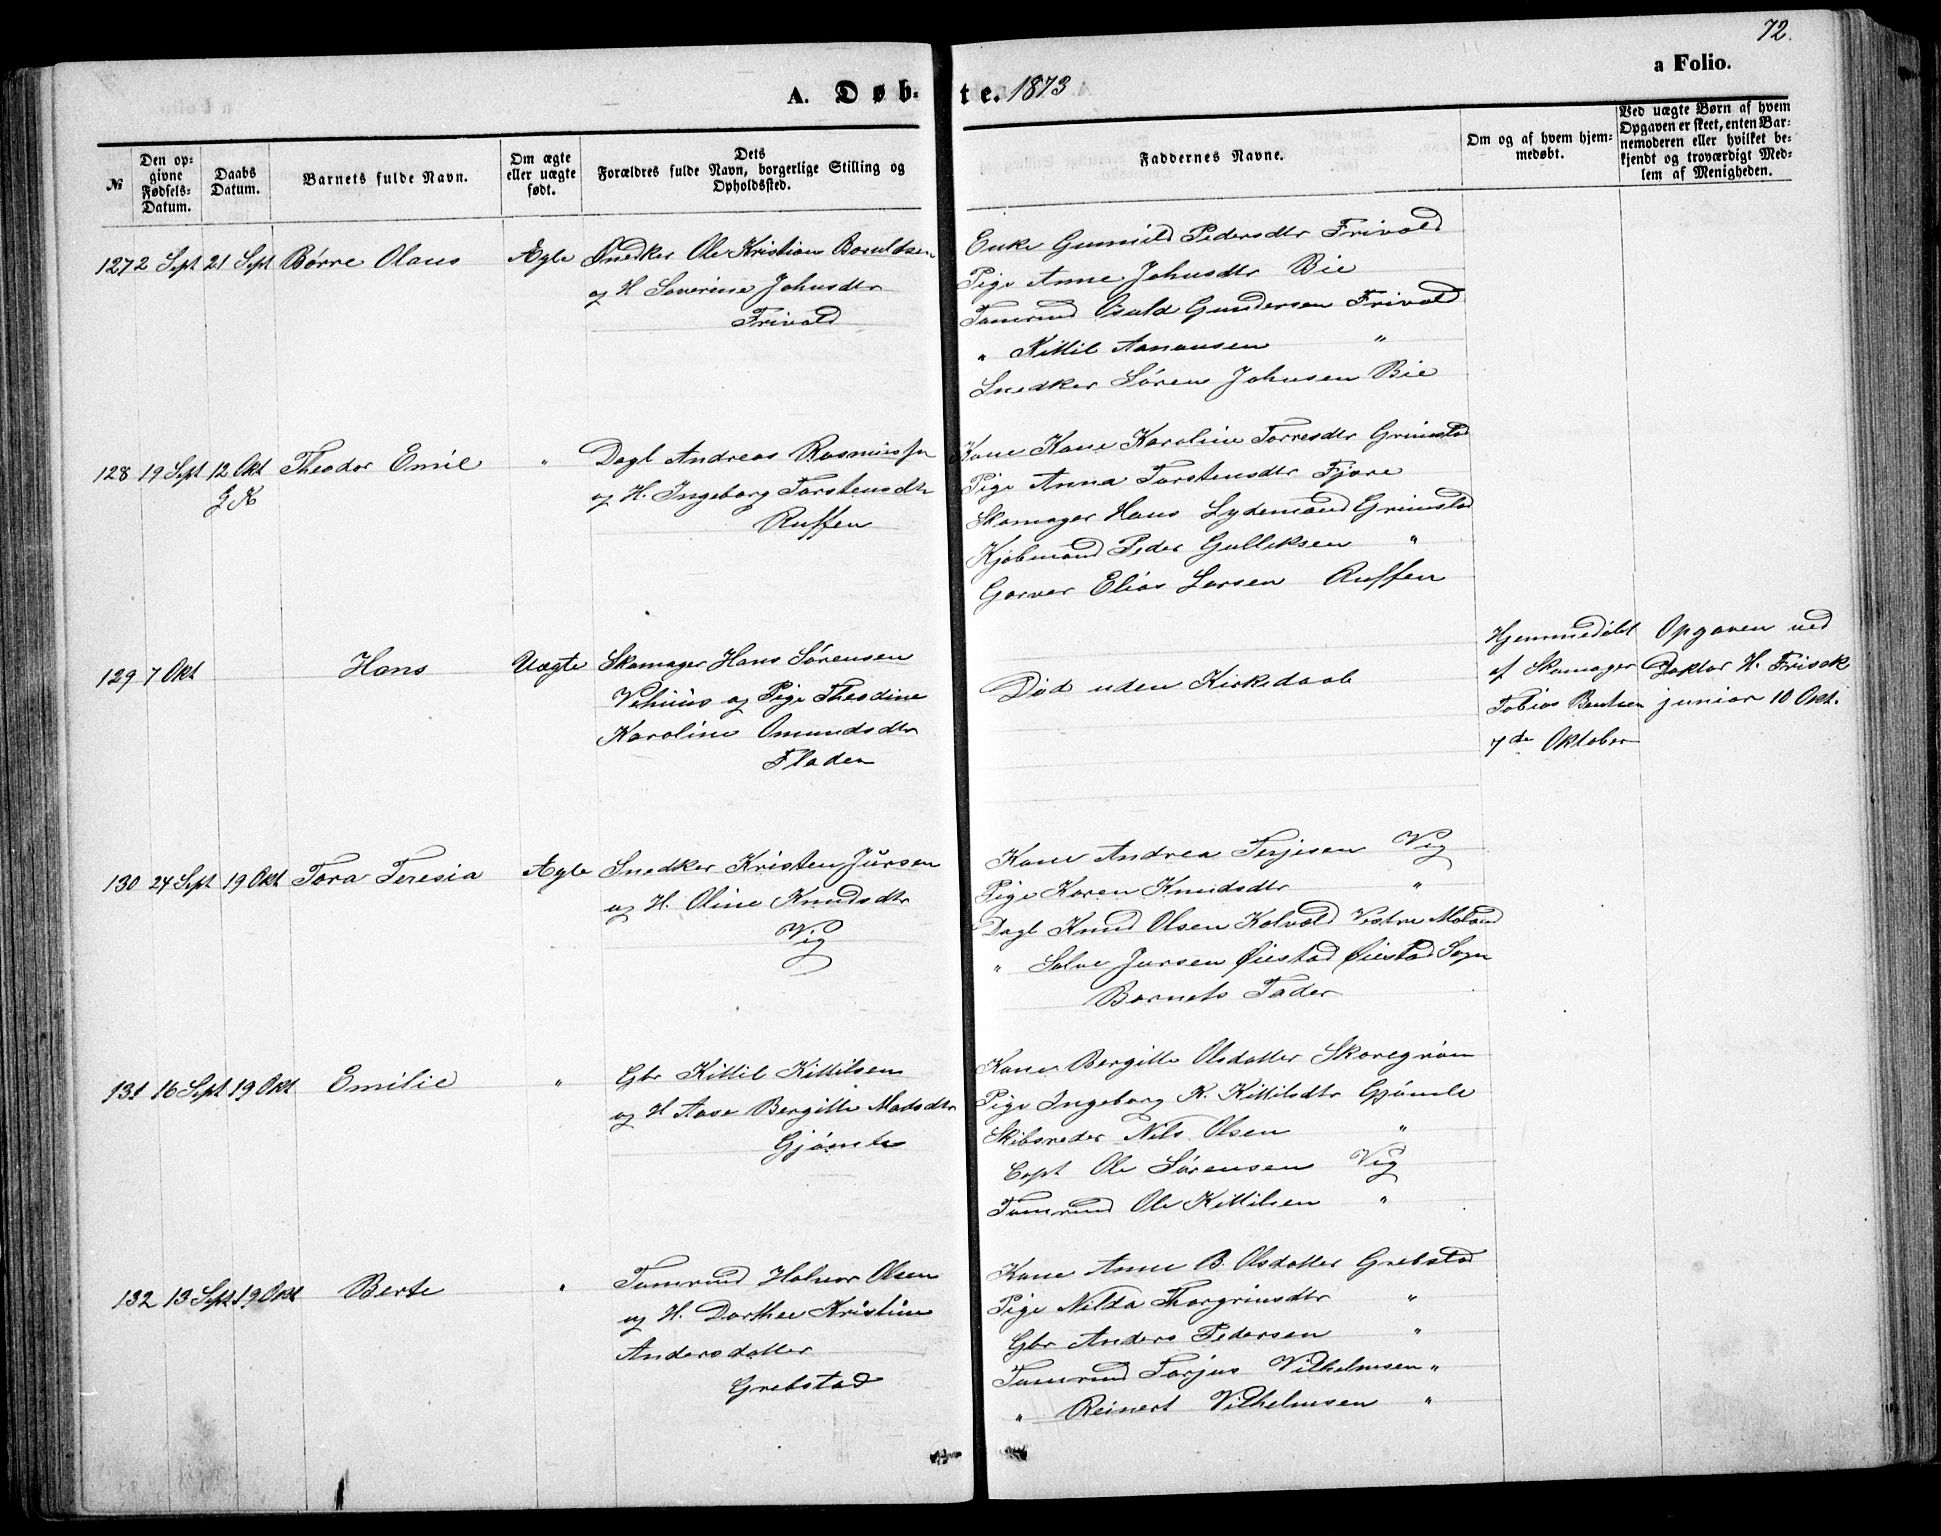 72.
a Folio.
A. Døb- te. 1873
№
Den op-
givne
Fødsels-
Datum.
Daabs
Datum.
Barnets fulde Navn.
Om ægte
eller uægte
født.
Dets
Forældres fulde Navn, borgerlige Stilling og
Opholdssted.
Faddernes Navne.
Om og af hvem hjem-
medøbt.
Ved uægte Børn af hvem
Opgaven er skeet, enten Bar-
nemoderen eller hvilket be-
kjendt og troværdigt Med-
lem af Menigheden.
127 2 Sept 21 Sept Børre Olaus Ægte Snedker Ole Kristian Bosuldsen
og H Severine Johnsdtr
Frivold
Enke Gunnild Pedersdtr Frivold
Pige Anne Johnsdtr Bie
Tømrmd Osuld Gundersen Frivold
" Kittil Aanonsen "
Snedker Søren Johnsen Bie
128 19 Sept 12 Okt Theodor Emil " Dagl Andreas Rasmussen
G K
og H. Ingeborg Torstensdtr
Ruffen
Kone Karoline Torresdtr Grimstad
Pige Anna Torstensdtr Fjære
Skomager Hans Lydemand Grimstad
Kjøbmand Peder Gulliksen "
Garver Elias Larsen Ruffen
129 7 Okt Hans Uægte Skomager Hans Sørensen
Vehuus og Pige Theodine
Karoline Omundsdtr
Fladen
Død uden Kirkedaab
Hjemmedøbt
af Skomager
Tobias Bentsen
7de Oktober
Opgaven ved
Doktor H. Frisak
junior 10 Okt.
130 24 Sept 19 Okt Tora Teresia Ægte Snedker Kristen Jursen
og H. Oline Knudsdtr
Vig
Kone Andrea Terjesen Vig
Pige Karen Knudsdtr "
Dagl Knud Olsen Kolvold Vestre Moland
" Salve Jursen Øiestad Øiestad Sogn
Barnets Fader
131 16 Sept 19 Okt Emilie " Gbr Kittil Kittilsen
og H Aase Bergitte Madsdtr
Gjømle
Kone Bergitte Olsdatter Skaregrøm
Pige Ingeborg K. Kittilsdtr Gjømle
Skibsreder Nils Olsen "
Capt Ole Sørensen Vig
Tømrmd Ole Kittilsen "
132 13 Sept 19 Okt Berte " Tømrmd Halvor Olsen
og H. Dorthee Kristine
Andersdatter
Grebstad
Kone Anne B. Olsdatter Grebstad
Pige Nilda Thorgrimsdtr "
Gbr Anders Pedersen "
Tømrmd Torjus Vilhelmsen "
" Reinert Vilhelmsen "